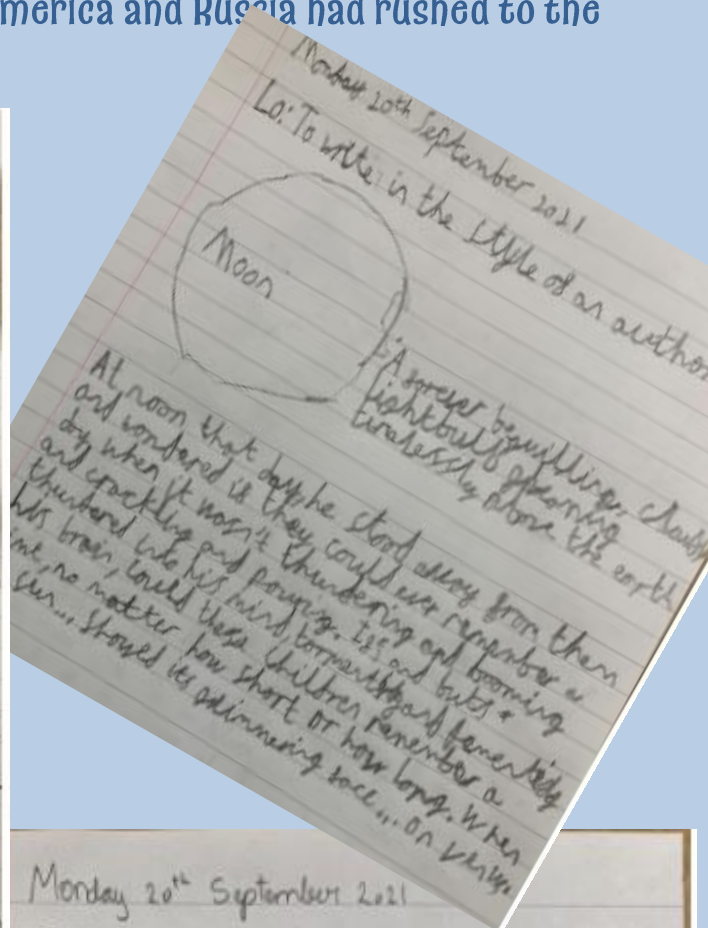 merica and Russia had rushed to the
Monday 20th September 2021
Lo: To write in the style of an author
Moon
A forever beguilling, cloudy
lightbulb gleaming
tirelessly above the earth
At noon that day, he stood away from them
and wondered if they could ever remember a
day when it wasn't thundering and booming
and crackling and pouring. Ifs and buts
thundered into his mind, tormenting and
his brain, could these children remember a
time, no matter how short or how long. When
sun... showed its shimmering face... On Venus.
Monday 20th September 2021